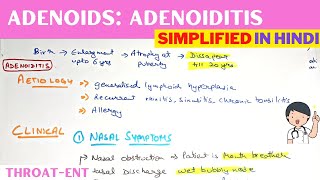 ADENOIDS: ADENOIDITIS
SIMPLIFIED IN HINDI
Birth → Enlargement upto 6 yrs → Atrophy at puberty → Disappear till 20 yrs
ADENOIDITIS
AETIOLOGY
→ generalised lymphoid hyperplasia
→ Recurrent rhinitis, sinusitis, chronic tonsilitis
→ Allergy
CLINICAL
① NASAL SYMPTOMS
Nasal obstruction → Patient is mouth breather
Nasal Discharge wet bubbly nose
THROAT-ENT